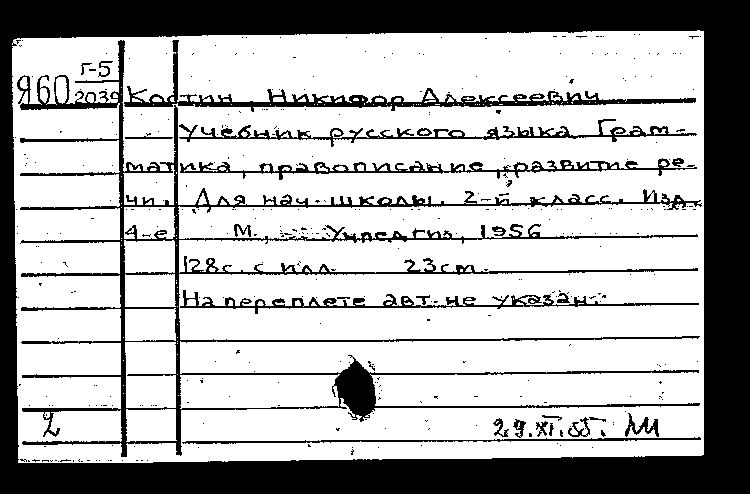 Я60 Г-5
2039 Костин, Никифор Алексеевич
Учебник русского языка Грам-
матика, правописание, развитие ре-
чи. Для нач. школы. 2-й класс. Изд.
4-е М., Учпедгиз, 1956
128с. с илл. 23см.
На переплете авт. не указан.
2 29.XI.55.